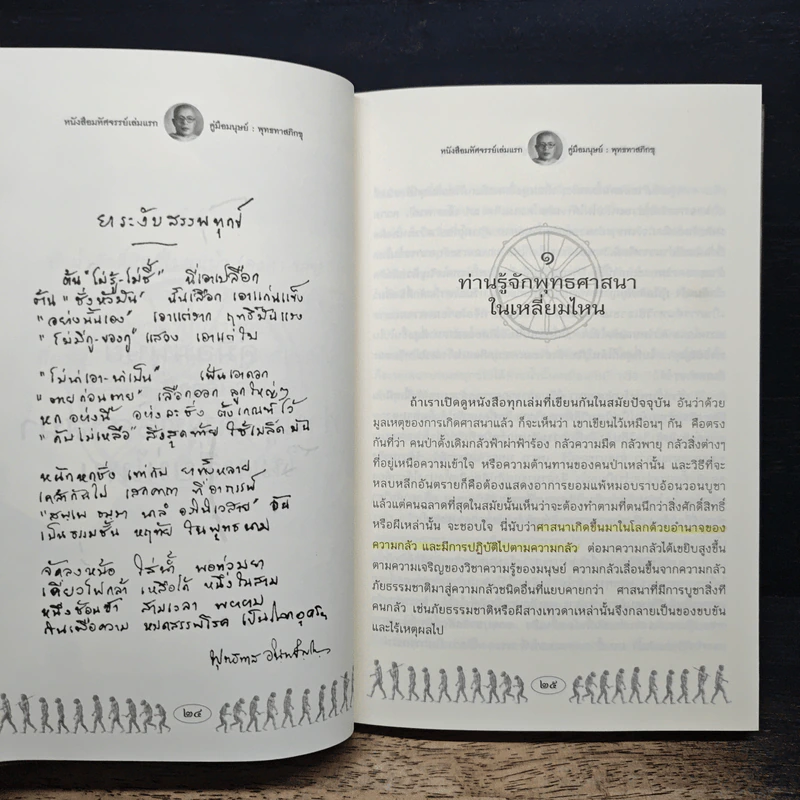 หนังสือมหัศจรรย์เล่มแรก คู่มือมนุษย์ : พุทธทาสภิกขุ
ยาระงับสรรพทุกข์
ต้น "ไม่รู้-ไม่ชี้" นี่เอาเปลือก
ต้น "ชั่งหัวมัน" นั้นเลือก เอาแก่นแข็ง
"อย่างนั้นเอง" เอาแต่ราก ฤทธิ์มันแรง
"ไม่มีกู-ของกู" แสวง เอาแต่ใบ
"ไม่น่าเอา-น่าเป็น" เฟ้นเอาดอก
"ตายก่อนตาย" เลือกออก ลูกใหญ่ๆ
หกอย่างนี้ อย่างละชั่ง ตั้งเกณฑ์ไว้
"ดับไม่เหลือ" สิ่งสุดท้าย ใช้เมล็ดมัน
หนักหกชั่ง เท่ากับ ยาทั้งหลาย
เคล้ากันไป เสกคาถา ที่อาถรรพ์
"สพฺเพ ธมฺมา นาลํ อภินิเวสาย" อัน
เป็นธรรมชั้น หฤทัย ในพุทธนาม
จัดลงหม้อ ใส่น้ำ พอท่วมยา
เคี่ยวไฟกล้า เหลือได้ หนึ่งในสาม
หนึ่งช้อนชา สามเวลา พยายาม
กินเพื่อความ หมดสรรพโรค เป็นโลกอุดรฯ
พุทธทาส อินทปัญโญ
๒๔
หนังสือมหัศจรรย์เล่มแรก คู่มือมนุษย์ : พุทธทาสภิกขุ
๑
ท่านรู้จักพุทธศาสนา
ในเหลี่ยมไหน
ถ้าเราเปิดดูหนังสือทุกเล่มที่เขียนกันในสมัยปัจจุบัน อันว่าด้วย
มูลเหตุของการเกิดศาสนาแล้ว ก็จะเห็นว่า เขาเขียนไว้เหมือนๆ กัน คือตรง
กันที่ว่า คนป่าดั้งเดิมกลัวฟ้าผ่าฟ้าร้อง กลัวความมืด กลัวพายุ กลัวสิ่งต่างๆ
ที่อยู่เหนือความเข้าใจ หรือความต้านทานของคนป่าเหล่านั้น และวิธีที่จะ
หลบหลีกอันตรายก็คือต้องแสดงอาการยอมแพ้หมอบราบอ้อนวอนบูชา
แล้วแต่คนฉลาดที่สุดในสมัยนั้นเห็นว่าจะต้องทำตามที่ตนนึกว่าสิ่งศักดิ์สิทธิ์
หรือผีเหล่านั้น จะชอบใจ นี่นับว่าศาสนาเกิดขึ้นมาในโลกด้วยอำนาจของ
ความกลัว และมีการปฏิบัติไปตามความกลัว ต่อมาความกลัวได้เขยิบสูงขึ้น
ตามความเจริญของวิชาความรู้ของมนุษย์ ความกลัวเลื่อนขึ้นจากความกลัว
ภัยธรรมชาติมาสู่ความกลัวชนิดอื่นที่แยบคายกว่า ศาสนาที่มีการบูชาสิ่งที่
คนกลัว เช่นภัยธรรมชาติหรือผีสางเทวดาเหล่านั้นจึงกลายเป็นของขบขัน
และไร้เหตุผลไป
๒๕